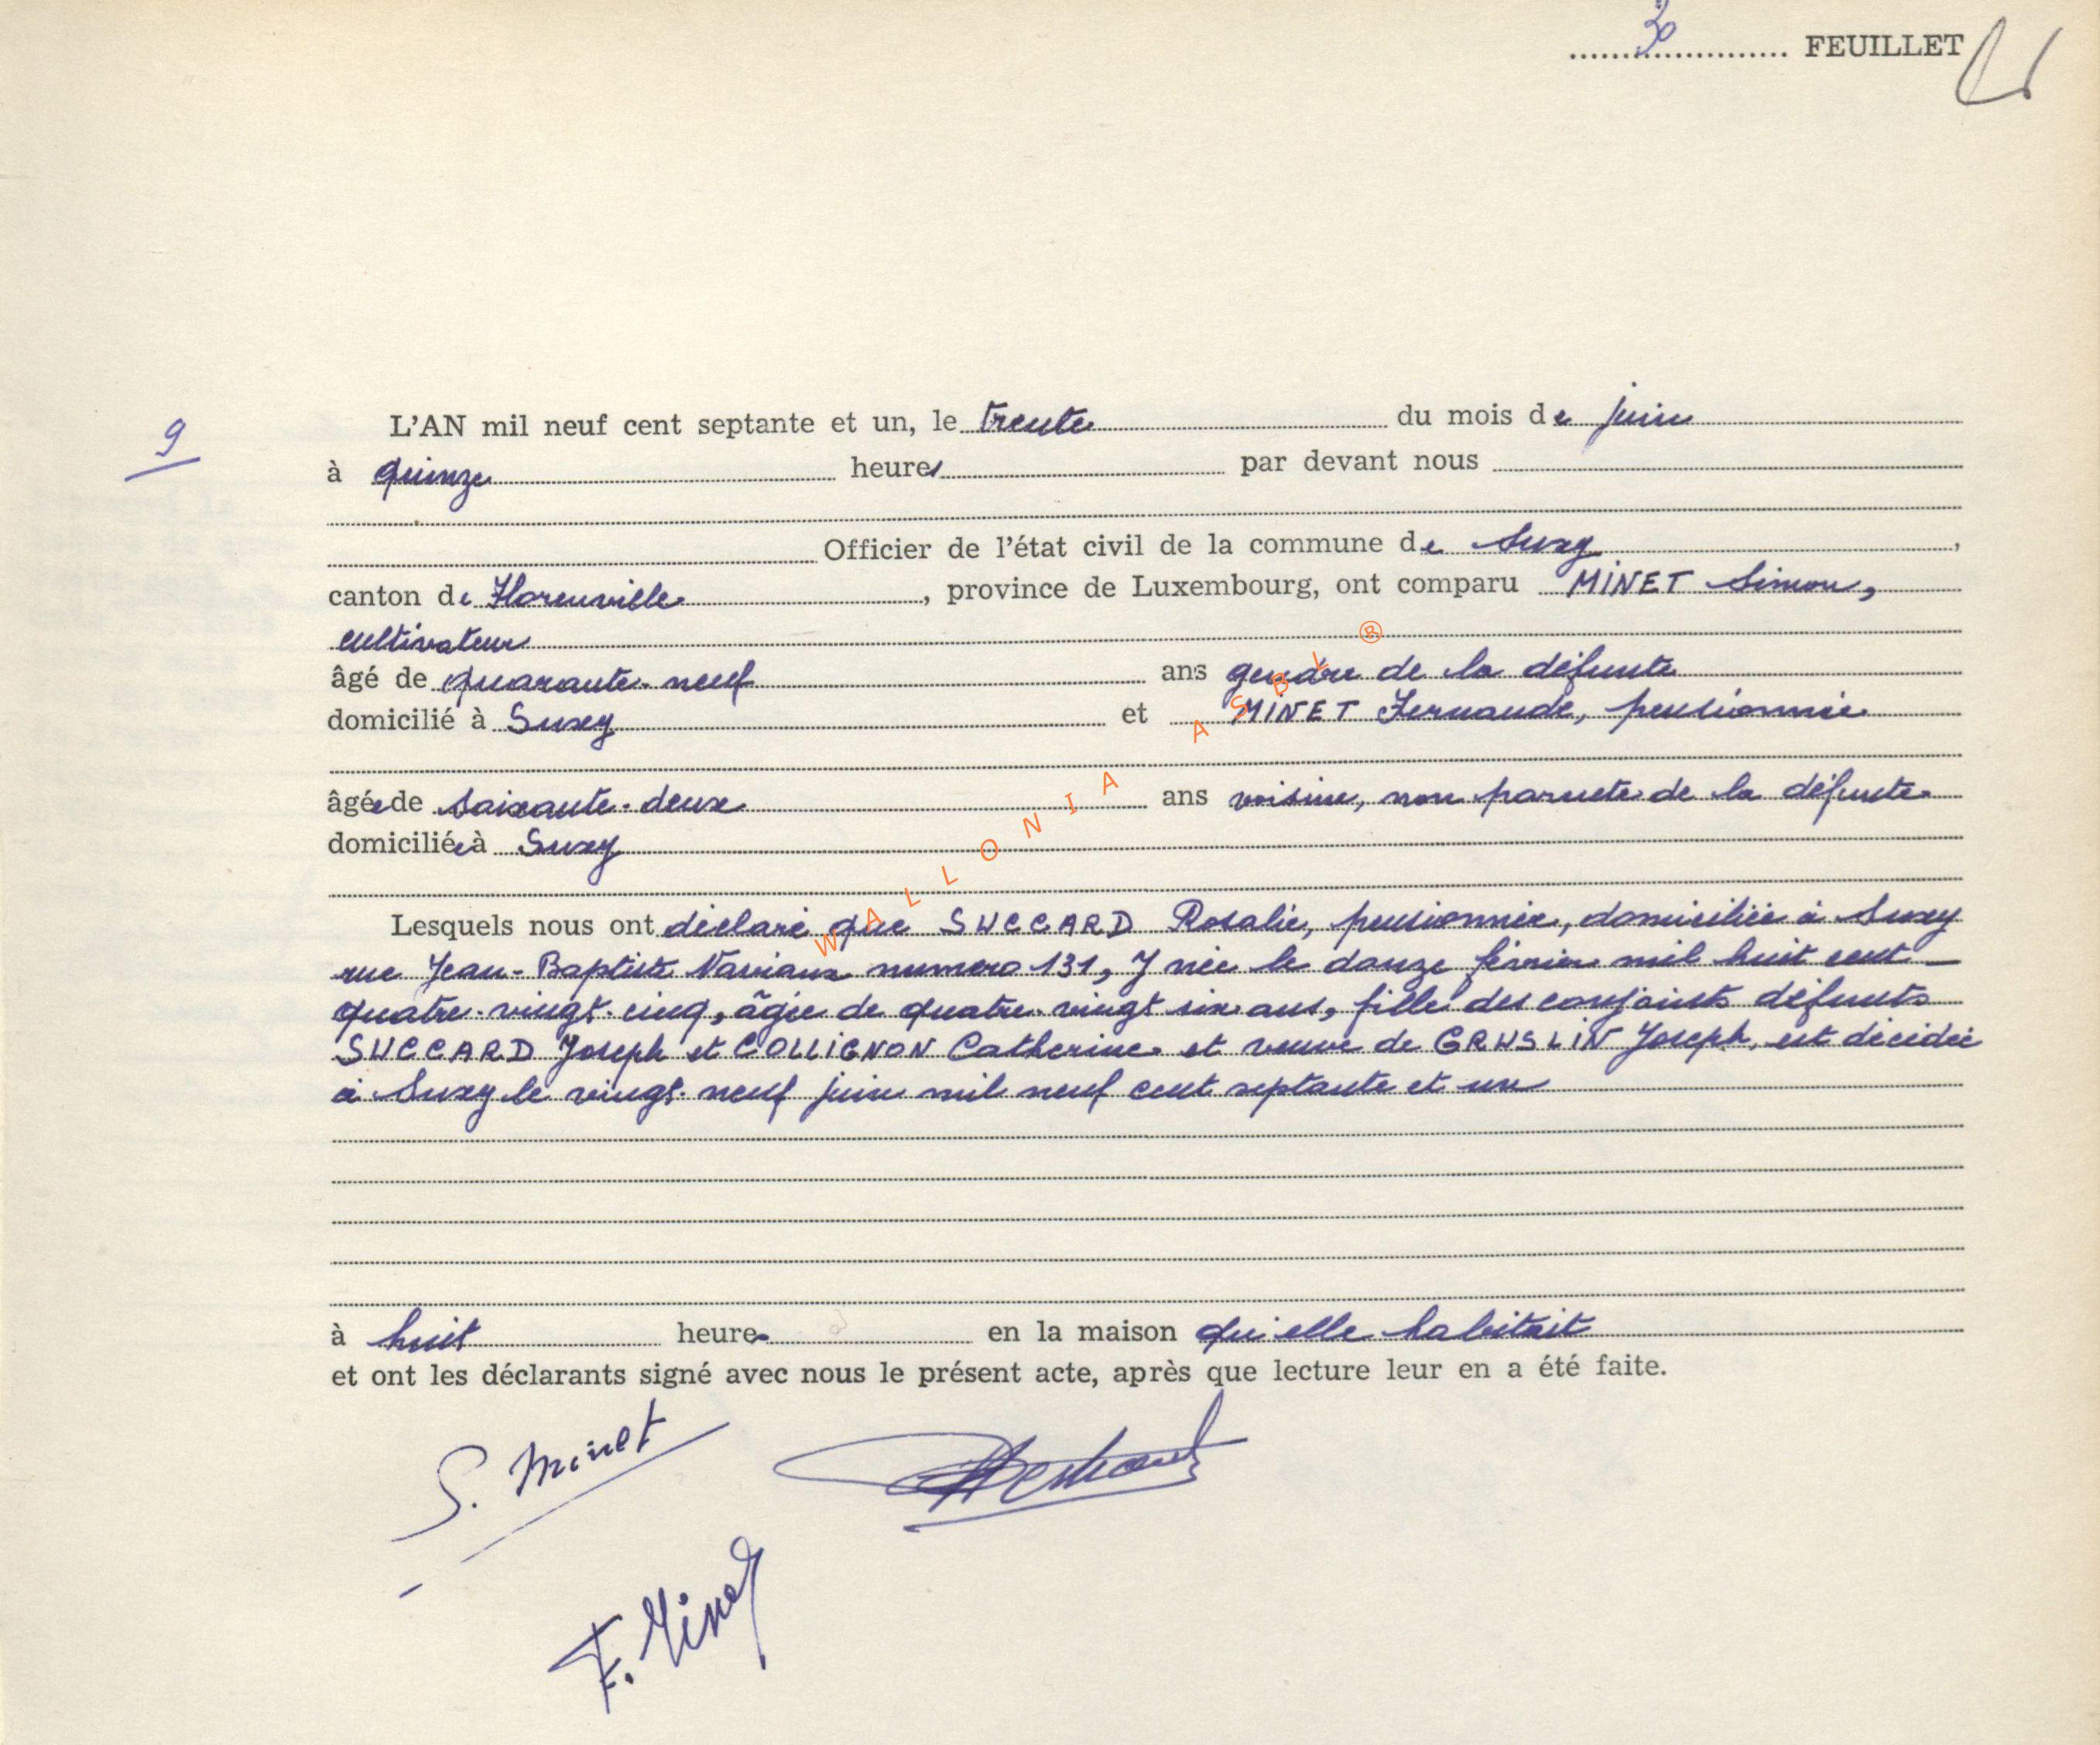 30 FEUILLET
9
L'AN mil neuf cent septante et un, le trente du mois de juin
à quinze heures par devant nous
Officier de l'état civil de la commune de Suxy,
canton de Florenville, province de Luxembourg, ont comparu MINET Simon,
cultivateur
âgé de quarante-neuf ans gendre de la défunte
domicilié à Suxy et MINET Fernande, pensionnée
âgée de soixante-deux ans voisine, non parente de la défunte
domiciliée à Suxy
Lesquels nous ont déclaré que SUCCARD Rosalie, pensionnée, domiciliée à Suxy
rue Jean-Baptiste numéro 131, y née le douze février mil huit cent
quatre-vingt-cinq, âgée de quatre-vingt six ans, fille des conjoints défunts
SUCCARD Joseph et COLLIGNON Catherine et veuve de GRUSLIN Joseph, est décédée
à Suxy le vingt-neuf juin mil neuf cent septante et un
à huit heures en la maison qu'elle habitait
et ont les déclarants signé avec nous le présent acte, après que lecture leur en a été faite.
S. Minet
F. Minet
WALLONIA ASBL ®